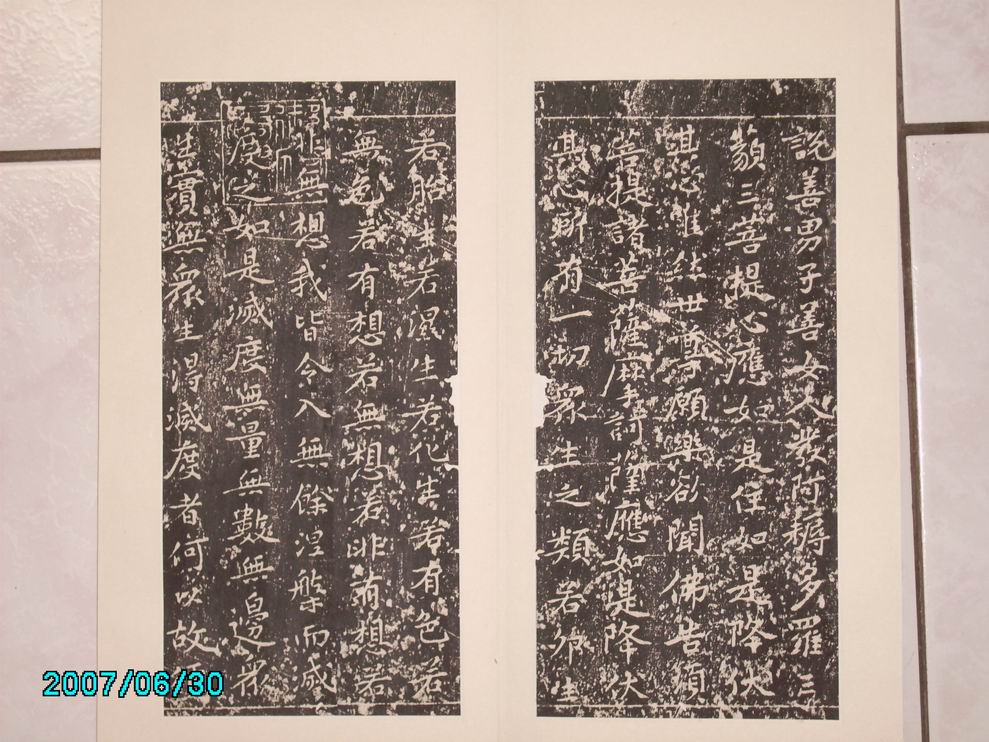 說善男子善女人發阿耨多羅三
藐三菩提心應如是住如是降伏
其心惟然世尊願樂欲聞佛告須
菩提諸菩薩摩訶薩應如是降伏
其心所有一切眾生之類若卵生
若胎生若濕生若化生若有色若
無色若有想若無想若非有想若
非無想我皆令入無餘涅槃而滅
度之如是滅度無量無數無邊眾
生實無眾生得滅度者何以故
2007/06/30